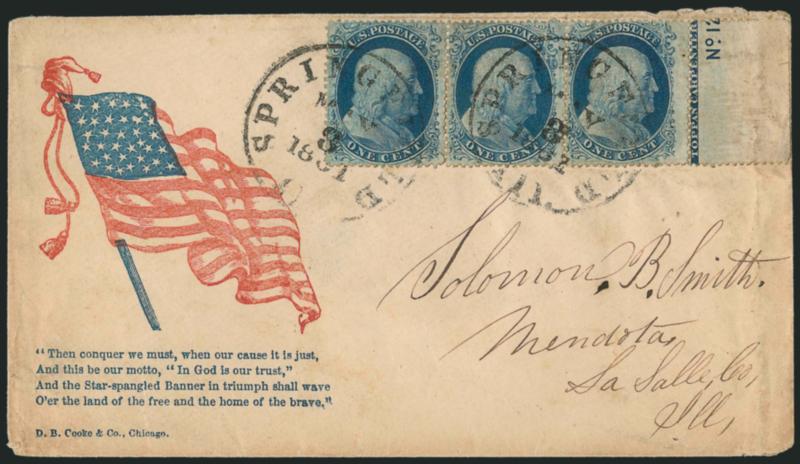 U.S. POSTAGE U.S. POSTAGE U.S. POSTAGE
ONE CENT ONE CENT ONE CENT
No 12
SPRINGFIELD
MAY
8
1861
SPRINGFIELD
MAY
8
1861
Solomon. B. Smith.
Mendota,
La Salle, Co,
Ill,
"Then conquer we must, when our cause it is just,
And this be our motto, "In God is our trust,"
And the Star-spangled Banner in triumph shall wave
O'er the land of the free and the home of the brave,"
D. B. Cooke & Co., Chicago.